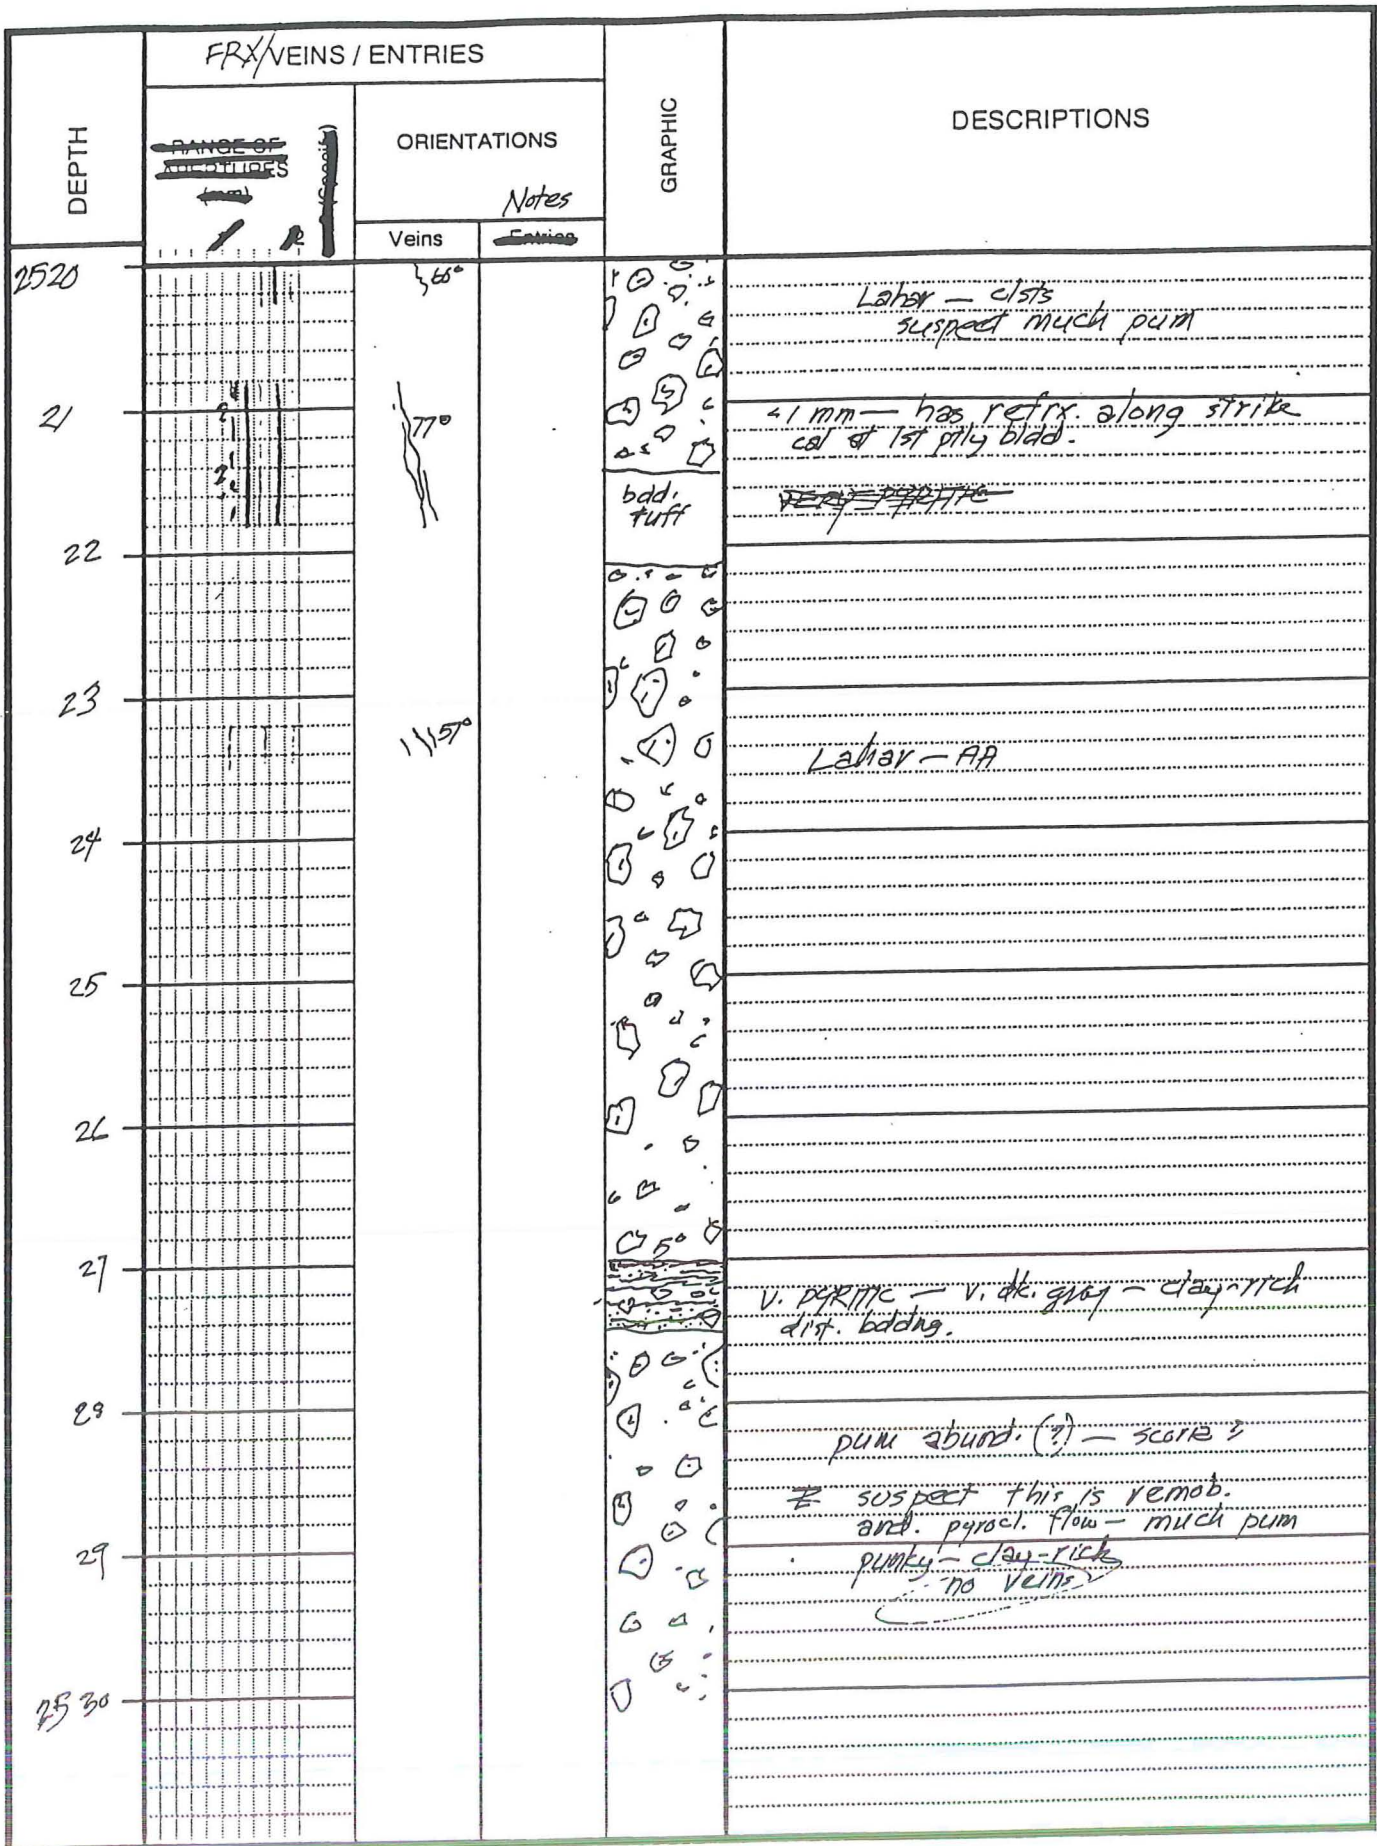 FRX/VEINS / ENTRIES
DEPTH
RANGE OF
APERTURES
(mm)
(Specify)
ORIENTATIONS
Notes
Veins
Entries
GRAPHIC
DESCRIPTIONS
2520
Lahar — clsts
suspect much pum
21
77°
<1 mm — has refrx. along strike
cal at 1st ptly bldd.
bdd.
tuff
22
23
57°
Lahar — AA
24
25
26
5°
27
V. PYRITIC — V. dk. gray — clay-rich
dist. bddng.
28
pum abund. (?) — scoria ?
suspect this is remob.
and. pyrocl. flow — much pum
29
punky — clay-rich
no veins
2530